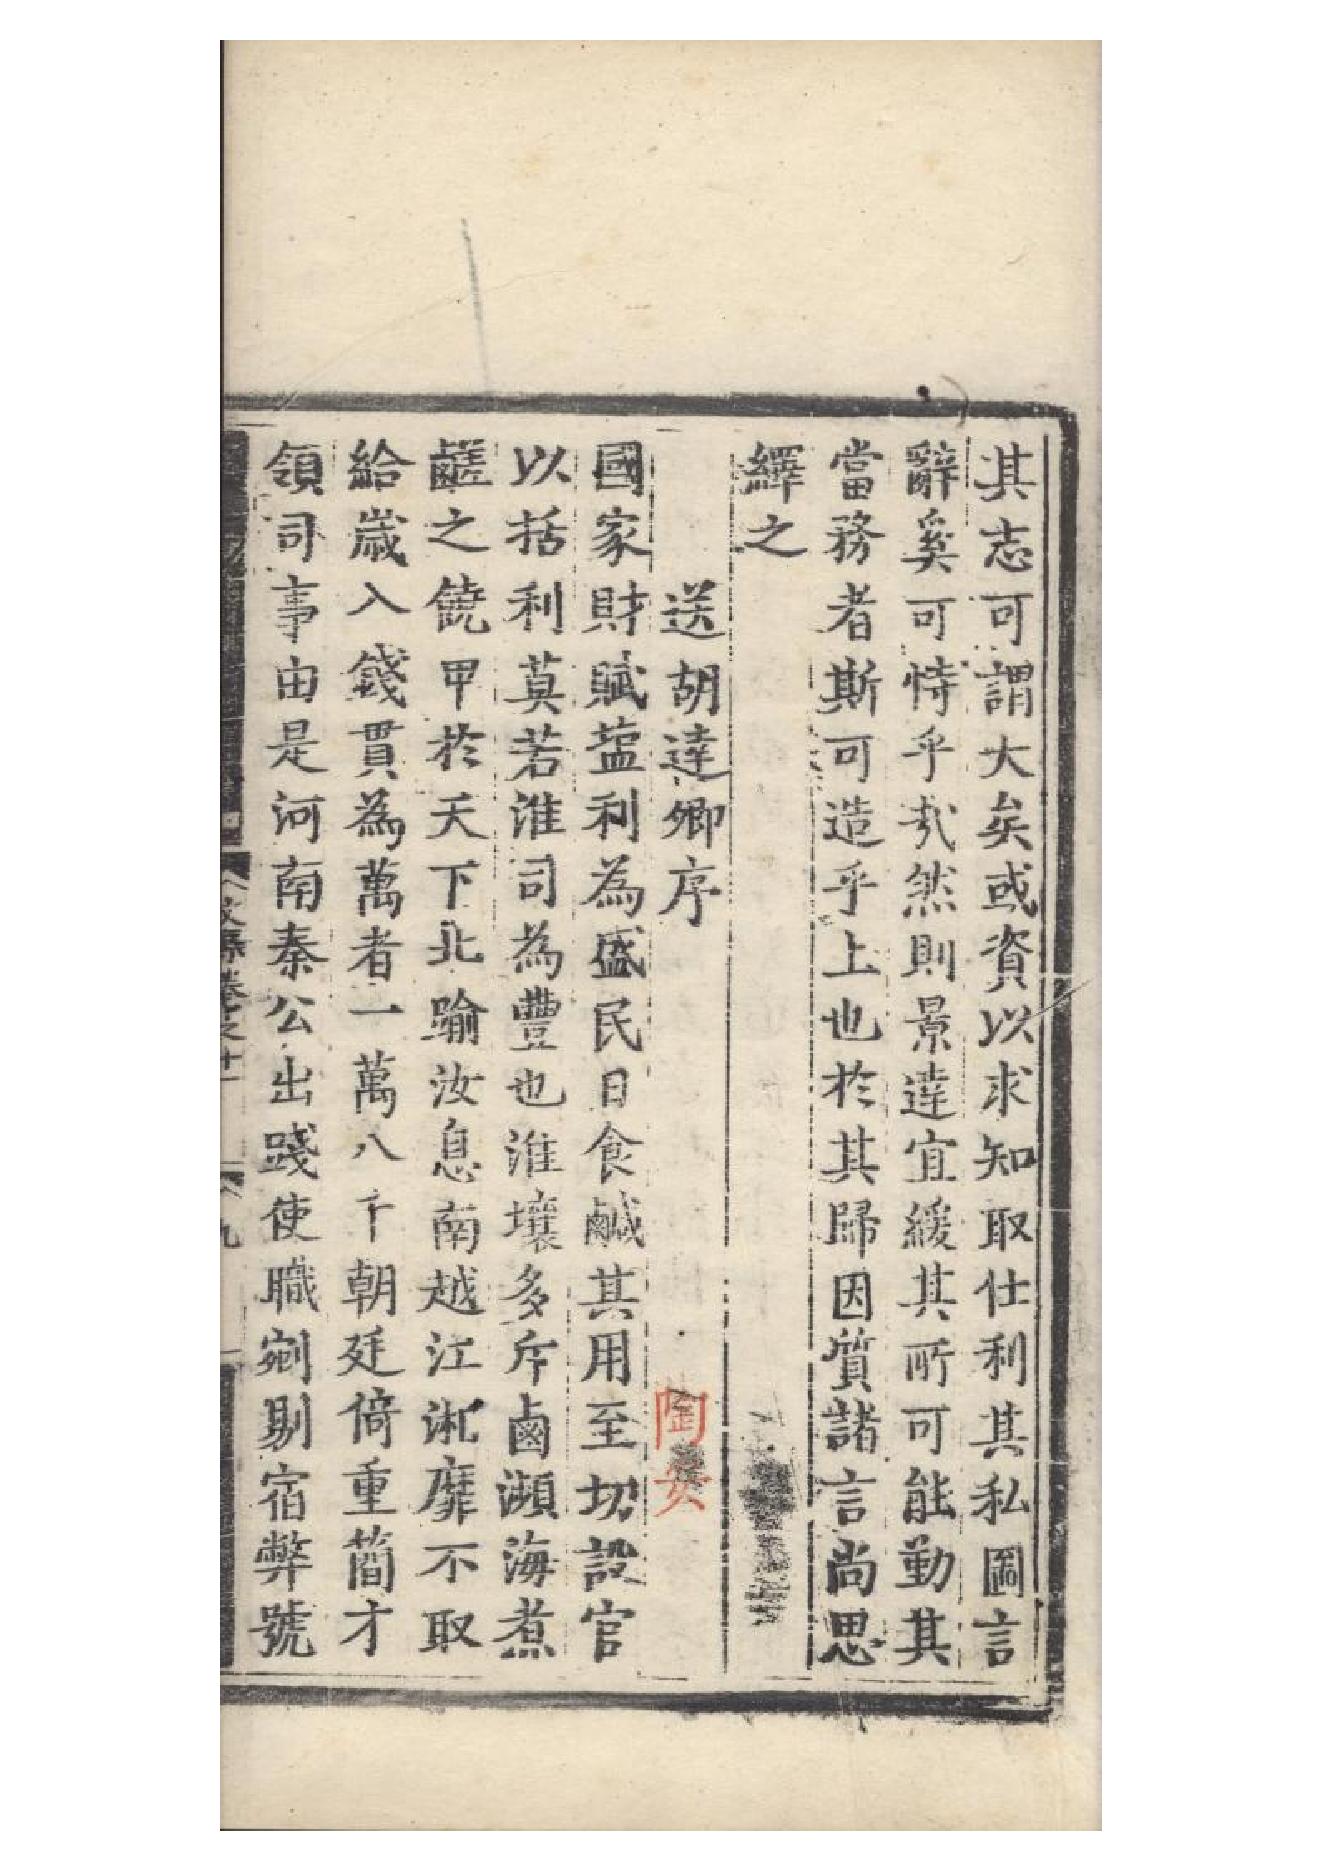 其志可謂大矣或資以求知取仕利其私圖言
辭奚可恃乎哉然則景達宜緩其所可能勤其
當務者斯可造乎上也於其歸因質諸言尚思
繹之
送胡達卿序
陶安
國家財賦葢利為盛民日食鹹其用至切設官
以括利莫若淮司為豐也淮壤多斥鹵瀕海煮
鹺之饒甲於天下北踰汝息南越江淛靡不取
給歲入錢貫為萬者一萬八千朝廷倚重蕳才
領司事由是河南秦公出踐使職剜剔宿弊號
文 卷之十一
九